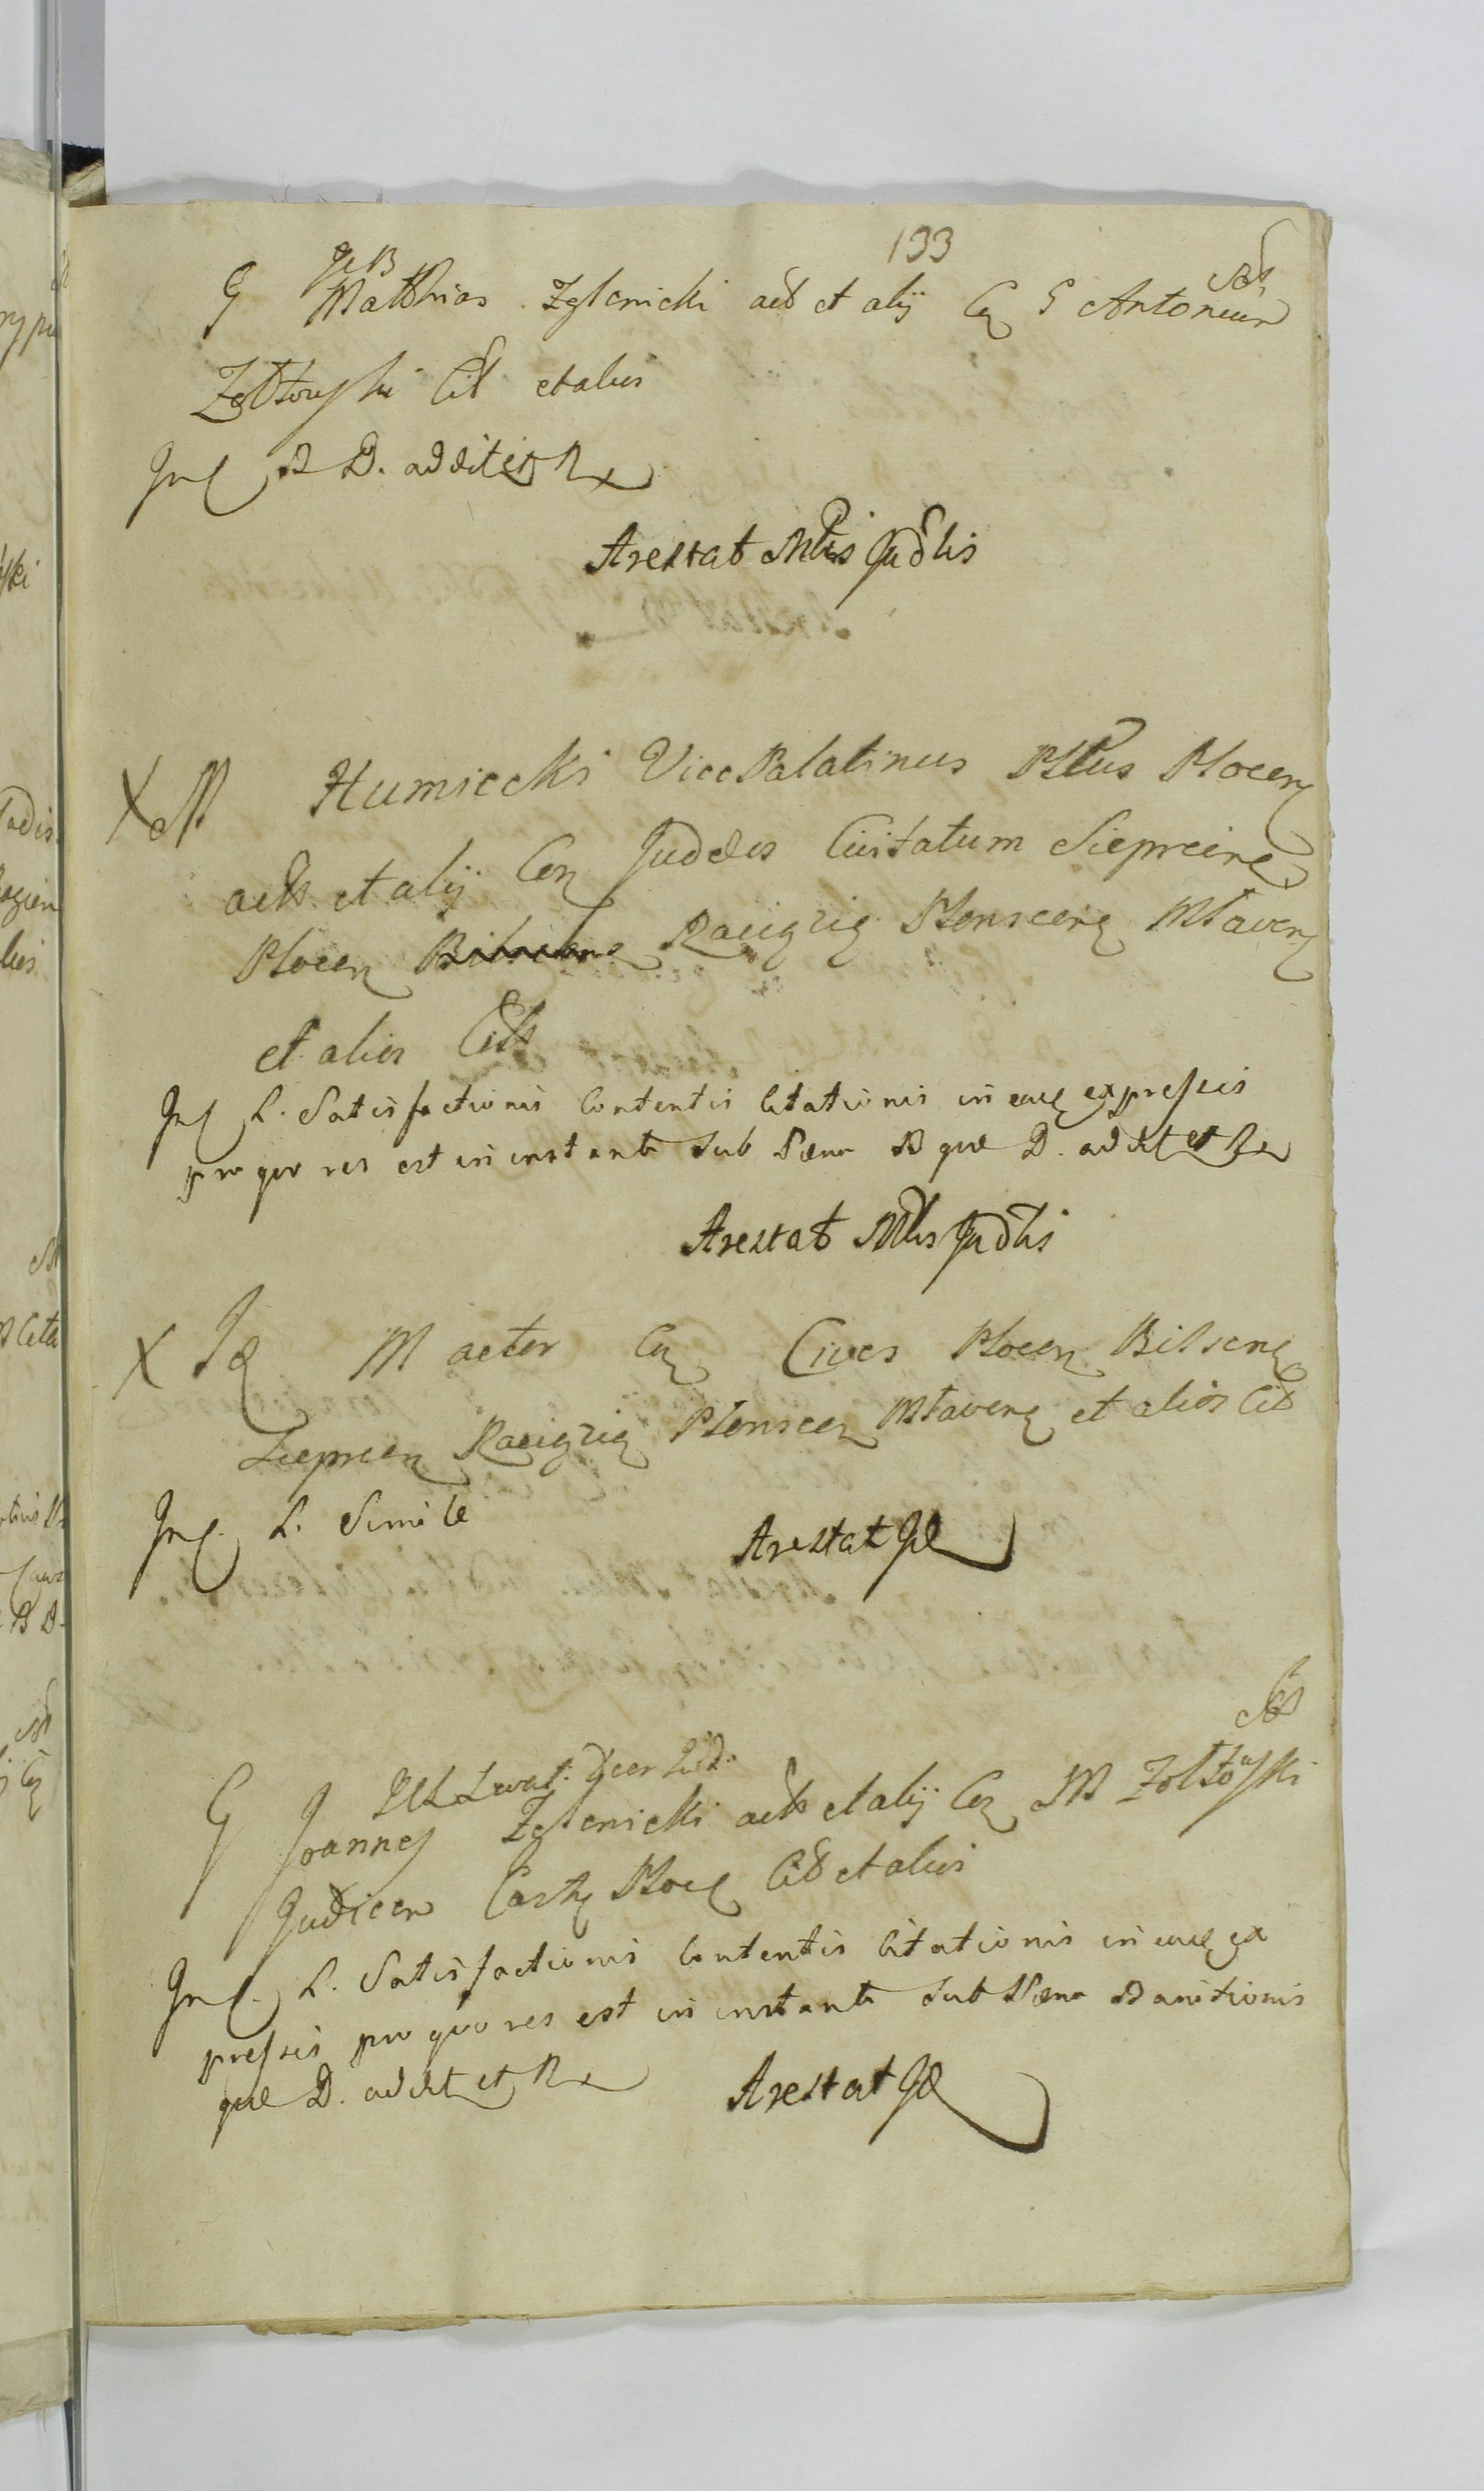 133
G Matthias Zglenicki act et alij Cn G Antonium
Zołtowski Cit et alios
Inq B D. addit et R
Arestat Mlis Judlis
X M Humiecki Vice Palatinus Pltus Plocen
acts et alij Cn Judeos Civitatum Sieprcen
Plocen Raciąziq Plonscen Mlaven
et alios Cits
Inq L. Satisfactionis Contentis Citationis in eaq expressis
pro quo res est in instanti sub Pæna B que D. addit et R
Arestat Mlis Judlis
X Iq M actor Cn Cives Plocen Bilscen
Sieprcen Raciąziq Plonscen Mlaven et alios Cit
Inq. L. Simile
Arestat Id
G Joannes Zglenicki acts et alij Cn M Zołtowski
Judicem Castr Ploc Cit et alios
Inq. L. Satisfactionis Contentis Citationis in eaq ex
pressis pro quo res est in instanti sub Pæna Banitionis
que D. addit et R
Arestat Id